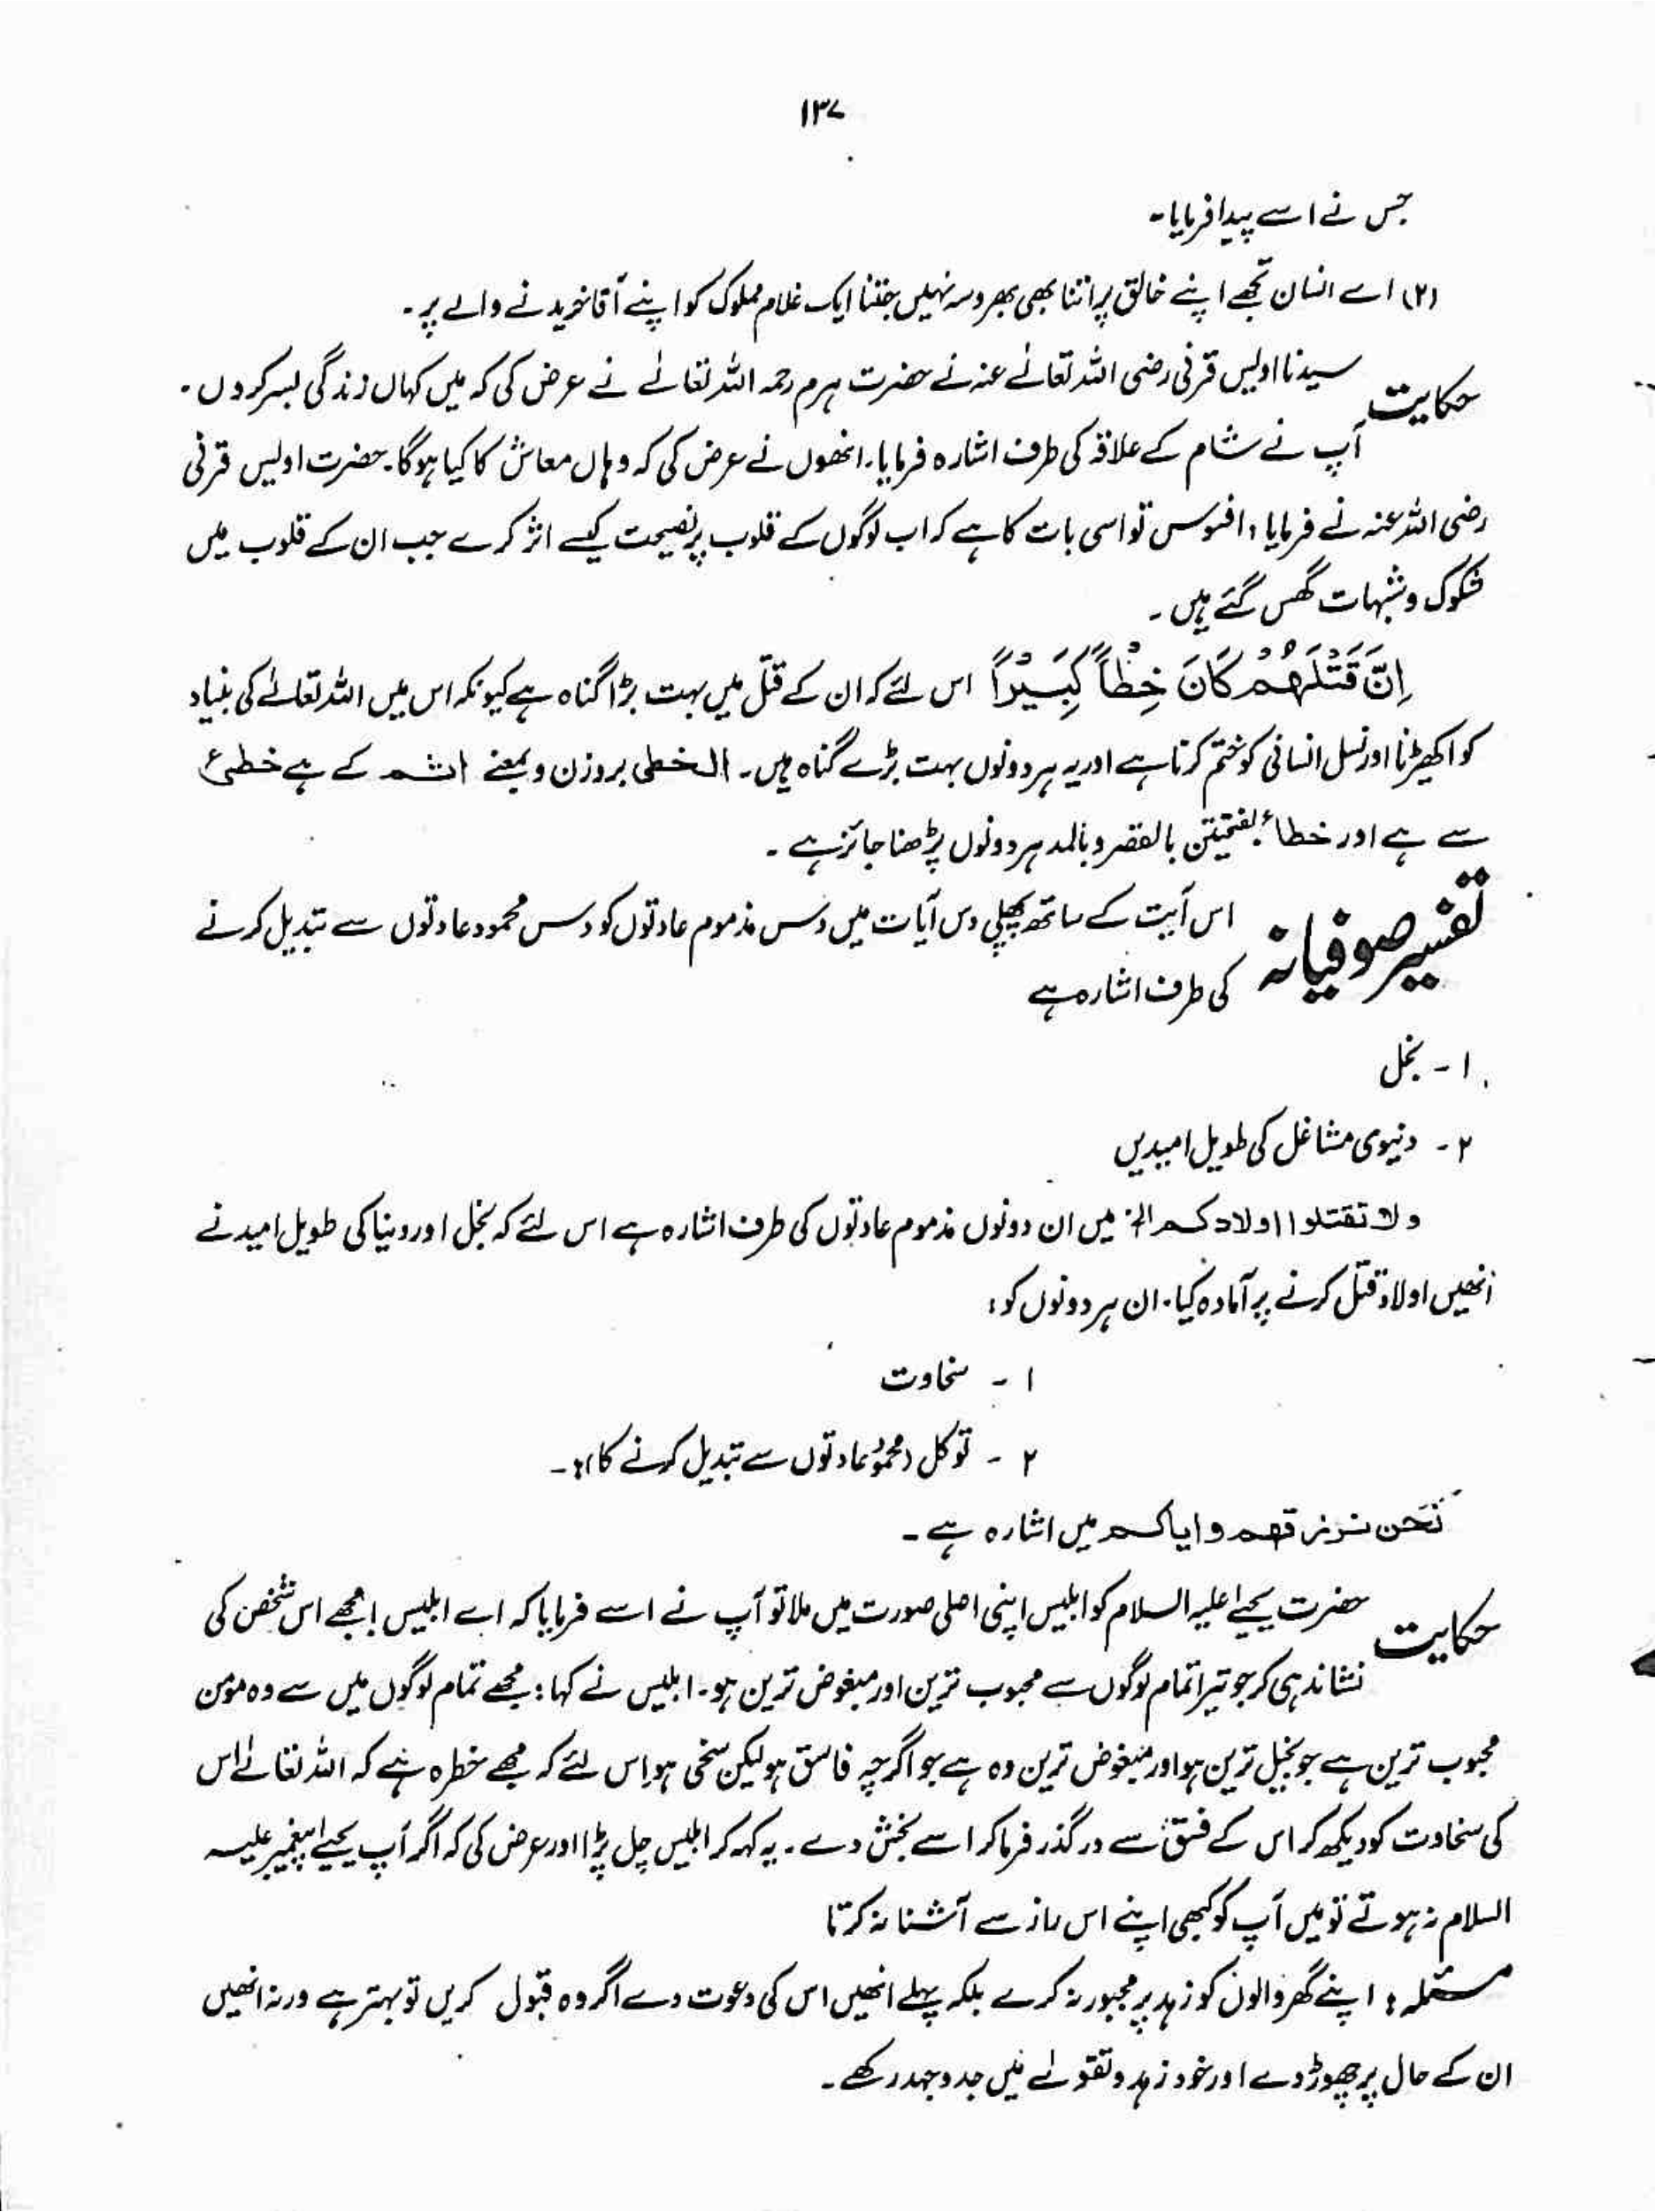 ۱۳۷
جس نے اسے پیدا فرمایا۔
(۲) اے انسان تجھے اپنے خالق پر اتنا بھی بھروسہ نہیں جتنا ایک غلام مملوک کو اپنے آقا خریدنے والے پر۔
حکایت سیدنا اویس قرنی رضی اللہ تعالٰے عنہ نے حضرت ہرم رحمہ اللہ تعالےٰ نے عرض کی کہ میں کہاں زندگی بسر کروں۔
آپ نے شام کے علاقہ کی طرف اشارہ فرمایا۔ انھوں نے عرض کی کہ وہاں معاش کا کیا ہوگا۔ حضرت اویس قرنی
رضی اللہ عنہ نے فرمایا، افسوس تو اسی بات کا ہے کہ اب لوگوں کے قلوب پر نصیحت کیسے اثر کرے جب ان کے قلوب میں
شکوک و شبہات گھس گئے ہیں۔
اِنَّ قَتْلَهُمْ كَانَ خِطْأً كَبِيْرًا اس لئے کہ ان کے قتل میں بہت بڑا گناہ ہے کیونکہ اس میں اللہ تعالےٰ کی بنیاد
کو اکھیڑنا اور نسل انسانی کو ختم کرنا ہے اور یہ ہر دونوں بہت بڑے گناہ ہیں۔ الخطی بروزن و بمعنے اثم کے ہے خطیٔ
سے ہے اور خطاءٌ بفتحتین بالقصر و بالمد ہر دونوں پڑھنا جائز ہے۔
تفسیر صوفیانہ اس آیت کے ساتھ پچھلی دس آیات میں دس مذموم عادتوں کو دس محمود عادتوں سے تبدیل کرنے
کی طرف اشارہ ہے
۱ ۔ بخل
۲ ۔ دنیوی مشاغل کی طویل امیدیں
ولا تقتلوا اولادکم الخ میں ان دونوں مذموم عادتوں کی طرف اشارہ ہے اس لئے کہ بخل اور دنیا کی طویل امید نے
انھیں اولاد قتل کرنے پر آمادہ کیا۔ ان ہر دونوں کو:
۱ ۔ سخاوت
۲ ۔ توکل (محمود عادتوں سے تبدیل کرنے کا)۔
نَحن نرزقھم و ایاکم میں اشارہ ہے۔
حکایت حضرت یحییٰ علیہ السلام کو ابلیس اپنی اصلی صورت میں ملا تو آپ نے اسے فرمایا کہ اے ابلیس! مجھے اس شخص کی
نشاندہی کر جو تیرا تمام لوگوں سے محبوب ترین اور مبغوض ترین ہو۔ ابلیس نے کہا: مجھے تمام لوگوں میں سے وہ مومن
محبوب ترین ہے جو بخیل ترین ہو اور مبغوض ترین وہ ہے جو اگرچہ فاسق ہو لیکن سخی ہو اس لئے کہ مجھے خطرہ ہے کہ اللہ تعالےٰ اس
کی سخاوت کو دیکھ کر اس کے فسق سے درگذر فرما کر اسے بخش دے۔ یہ کہہ کر ابلیس چل پڑا اور عرض کی کہ اگر آپ یحییٰ پیغمبر علیہ
السلام نہ ہوتے تو میں آپ کو کبھی اپنے اس راز سے آشنا نہ کرتا
مسئلہ: اپنے گھر والوں کو زہد پر مجبور نہ کرے بلکہ پہلے انھیں اس کی دعوت دے اگر وہ قبول کریں تو بہتر ہے ورنہ انھیں
ان کے حال پر چھوڑ دے اور خود زہد و تقوےٰ میں جدوجہد رکھے۔